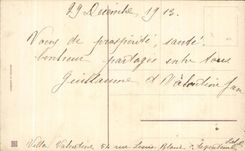 29 Décembre 1913.
Voeux de prospérité, santé,
bonheur partagés entre tous
Guillaume et Valentine
Villa Valentine 54 rue Louis Blanc